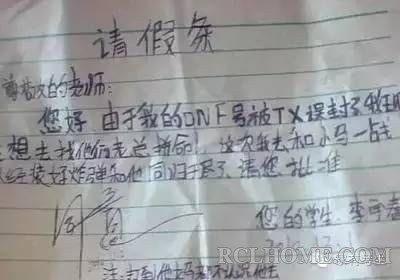 请假条
尊敬的老师:
您好 由于我的DNF号被TX误封了我现
想去找他们老总拼命,这次我去和小马一战
经装好炸弹和他同归于尽了.请您批准
同意
您的学生:李
RCLHOME.COM